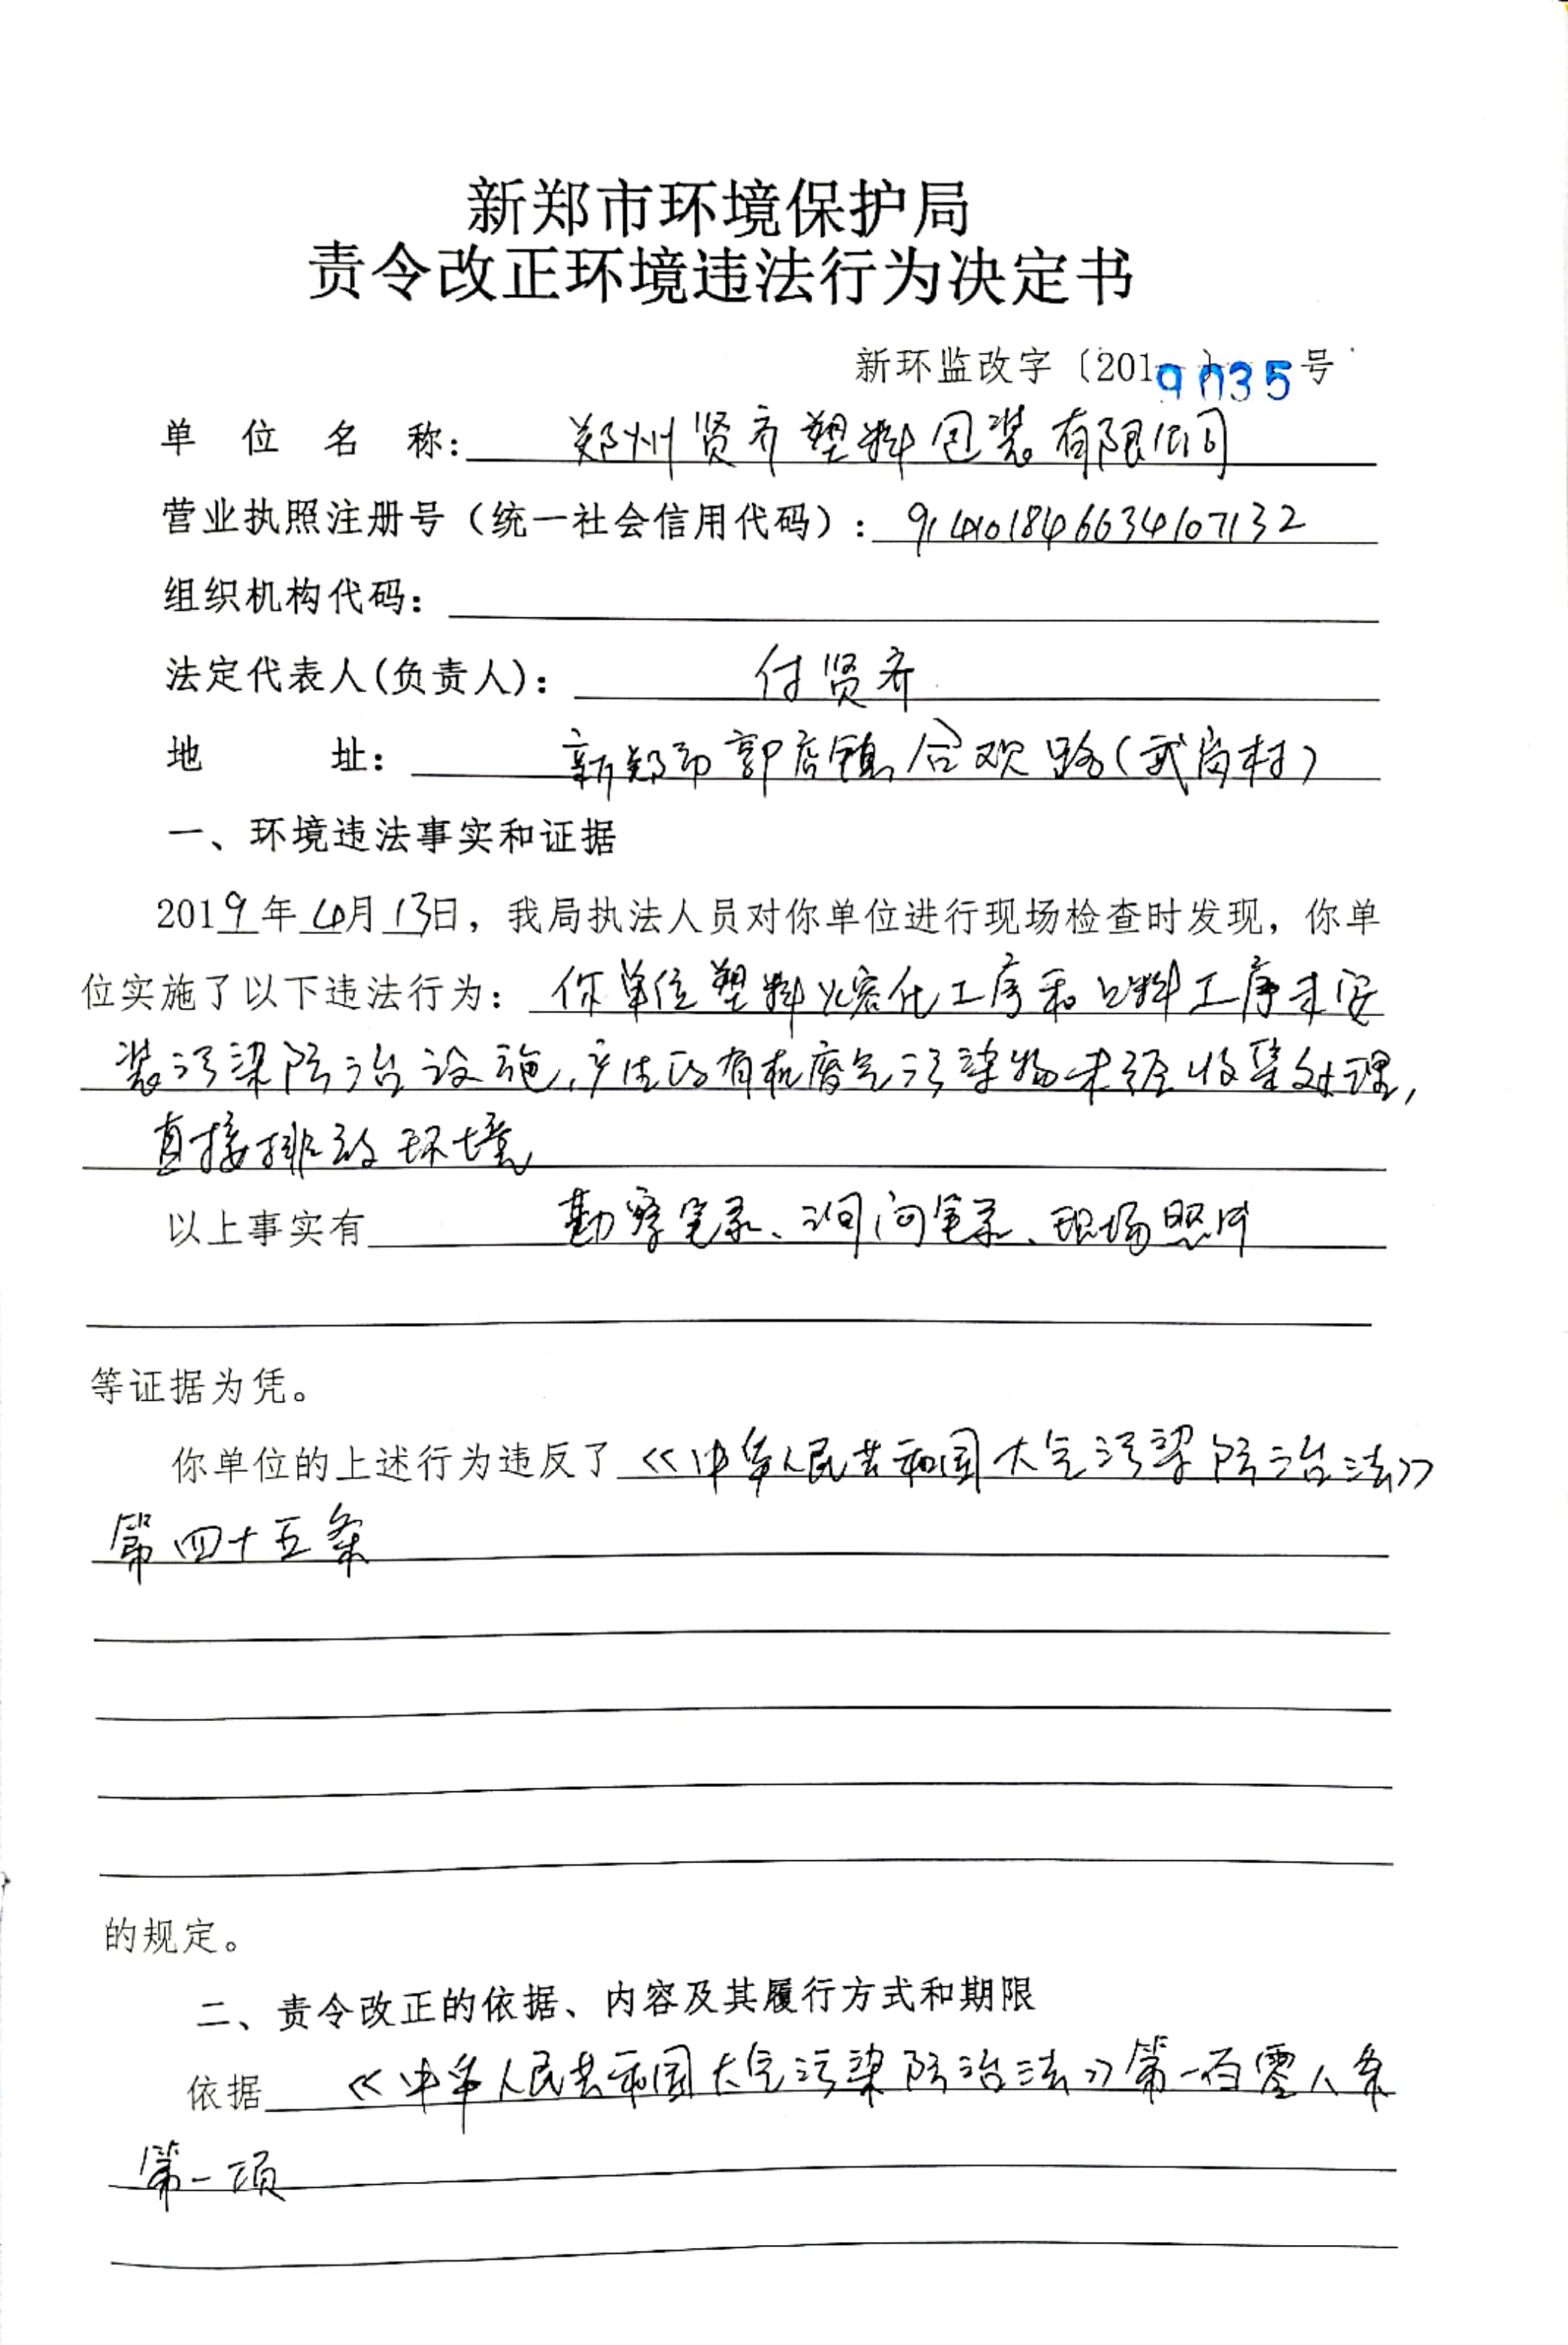 新郑市环境保护局
责令改正环境违法行为决定书
新环监改字〔2019〕035号
单位名称：郑州贤齐塑料包装有限公司
营业执照注册号（统一社会信用代码）：914101846634107132
组织机构代码：
法定代表人(负责人)：付贤齐
地址：新郑市郭店镇合欢路(武岗村)
一、环境违法事实和证据
2019年4月13日，我局执法人员对你单位进行现场检查时发现，你单
位实施了以下违法行为：你单位塑料熔化工序和上料工序未安
装污染防治设施，产生的有机废气污染物未经收集处理，
直接排放环境
以上事实有勘察笔录、询问笔录、现场照片
等证据为凭。
你单位的上述行为违反了《中华人民共和国大气污染防治法》
第四十五条
的规定。
二、责令改正的依据、内容及其履行方式和期限
依据《中华人民共和国大气污染防治法》第一百零八条
第一项